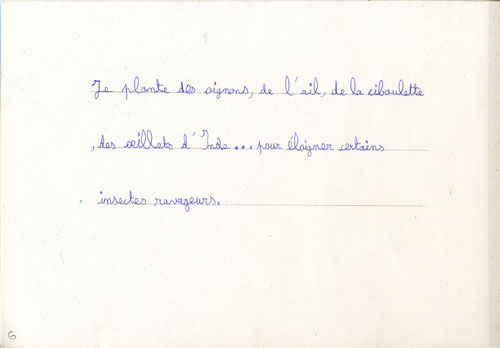 Je plante des oignons, de l'ail, de la ciboulette
, des œillets d'Inde... pour éloigner certains
insectes ravageurs.
6